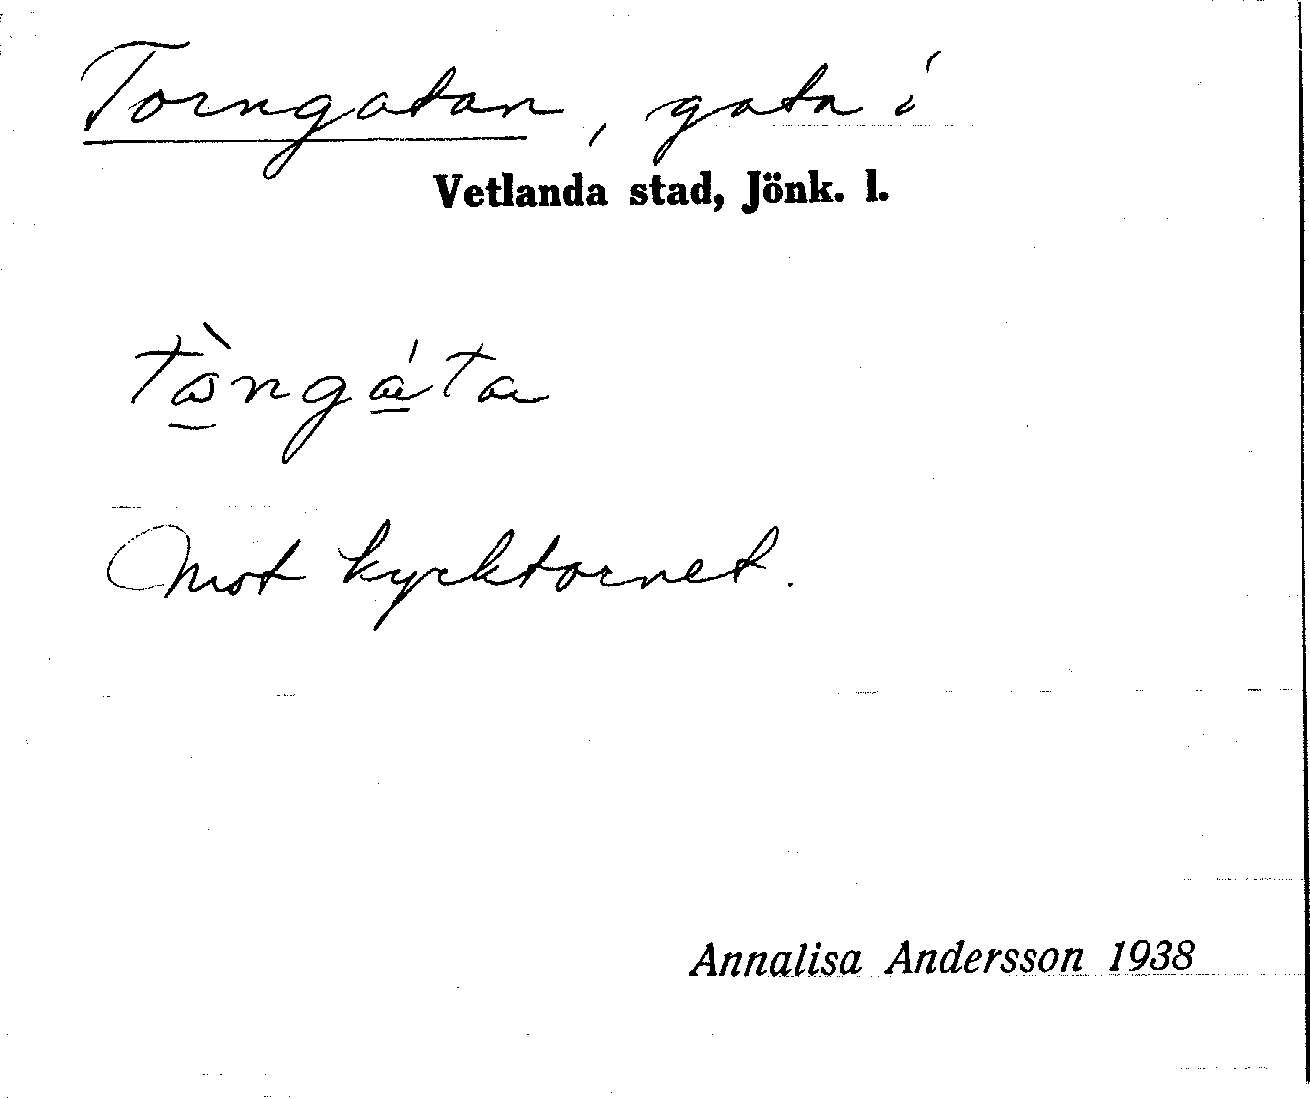 Torngatan, gata i
Vetlanda stad, Jönk. l.
tò̱ngá̱ta
Mot kyrktornet.
Annalisa Andersson 1938